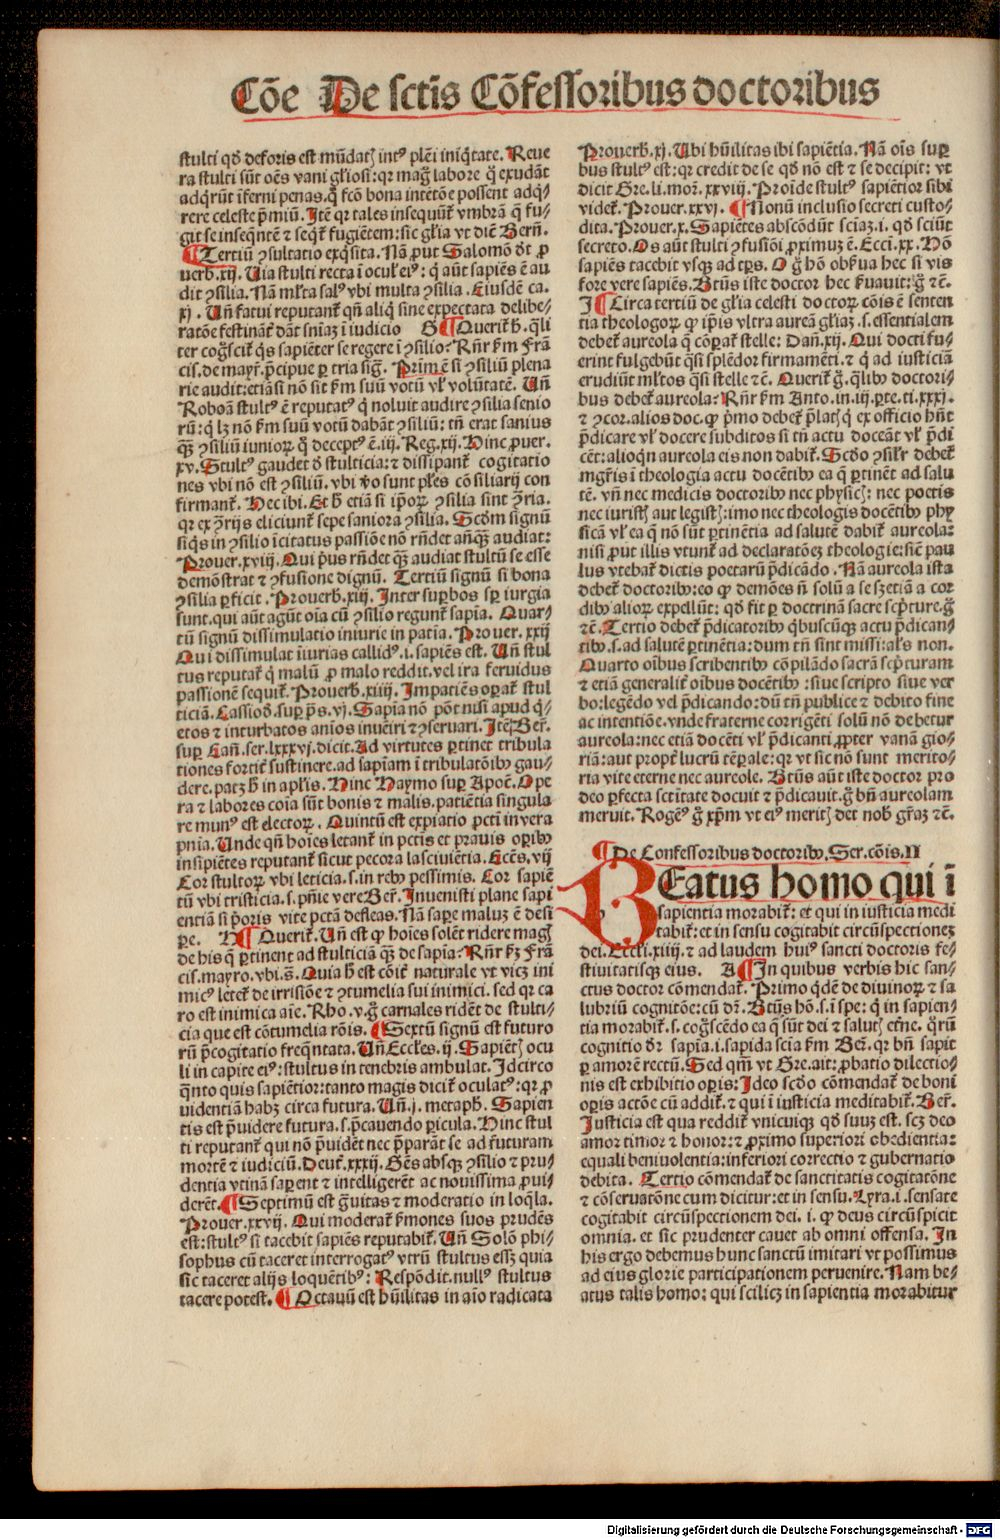 Cōe De sctīs Cōfessoribus doctoribus
stulti qd̄ deforis est mūdatꝭ int⁹ plēi iniq̄tate. Reue
ra stulti sūt oēs vani gl̓iosi: qr maḡ labore q̄ exudāt
adq̄rūt īferni penas. q̄ fcō bona intētōe possent adq̄/
rere celeste p̄miū. Itē qr tales insequūt̄ vmbrā q̄ fu/
git se inseq̄ntē ⁊ seq̄t̄ fugiētem: sic gl̓ia vt diē Berñ.
¶ Tertiū ꝯsultatio exq̄sita. Nā ꝓut Salomō dt̄ ꝓ
uerb. xij. Uia stulti recta ī ocul̓ ei⁹: q̄ aūt sapiēs ē au
dit ꝯsilia. Nā ml̓ta sal⁹ vbi multa ꝯsilia. Eiusdē ca.
xj. Uñ fatui reputant̄ qñ aliq̄ sine expectata delibe/
ratōe festināt̄ dāt sn̄iaꝫ ī iudicio G ¶ Querit̄ h̄. q̄li
ter coḡscit̄ q̄s sapiēter se regere ī ꝯsilio? Rn̄r ẜm Frā
cis. de mayr̄. p̄cipue ꝑ tria siḡ. Prim̄ ē si ꝯsiliū plena
rie audit: etiāsi nō sit ẜm suū votū vl̓ volūtatē. Uñ
Roboā stult⁹ ē reputat⁹ q̄ noluit audire ꝯsilia senio
rū: q̄ lꝫ nō ẜm suū votū dabāt ꝯsiliū: tn̄ erat sanius
q̄ꝫ ꝯsiliū iunioꝝ q̄ decept⁹ ē. iij. Reg. xij. Hinc ꝓuer.
xv. Stult⁹ gaudet d̄ stulticia: ⁊ dissipant̄ cogitatio
nes vbi nō est ꝯsiliū. vbi v̓o sunt pl̓es cōsiliarij con
firmant̄. Hec ibi. Et h̄ etiā si ip̄oꝝ ꝯsilia sint ꝯ̄ria.
qr ex ꝯ̄rijs eliciunt̄ sepe saniora ꝯsilia. Scd̄m signū
siq̄s in ꝯsilio īcitatus passiōe nō rn̄det añq̄ꝫ audiat:
Prouer. xviij. Qui p̄us rn̄det q̄ꝫ audiat stultū se esse
demōstrat ⁊ ꝯfusione dignū. Tertiū signū si bona
ꝯsilia ꝑficit. Prouerb̄. xiij. Inter suꝑbos sꝑ iurgia
sunt. qui aūt agūt oīa cū ꝯsilio regunt̄ sapīa. Quar/
tū signū dissimulatio iniurie in patīa. Prouer. xxij
Qui dissimulat īiurias callid⁹. i. sapiēs est. Uñ stul
tus reputat̄ q̄ malū ꝓ malo reddit. vel ira feruidus
passionē sequit̄. Prouerb̄. xiiij. Impatiēs oꝑat̄ stul
ticiā. Cassiod̄. suꝑ p̄s. vj. Sapīa nō pōt nisi apud q̄/
etos ⁊ inturbatos anīos inuēiri ⁊ ꝯseruari. Itē Ber̄.
suꝑ Cañ. ser. lxxxvj. dicit. Ad virtutes ꝑtinet tribula
tiones fortit̄ sustinere. ad sapīam ī tribulatōibꝰ gau/
dere. patꝫ h̄ in apl̓is. Hinc Haymo suꝑ Apoc̄. Ope
ra ⁊ labores coīa sūt bonis ⁊ malis. patiētia singula
re mun⁹ est electoꝝ. Quintū est expiatio pctī in vera
pnīa. Unde qñ hoīes letant̄ in pctīs et prauis oꝑibꝰ
insipiētes reputant̄ sicut pecora lasciuiētia. Eccēs. vij
Cor stultoꝝ vbi leticia. s. in rebꝰ pessimis. Cor sapiē
tū vbi tristicia. s. pn̄ie vere Ber̄. Inuenisti plane sapi
entiā si p̄oris vite pctā defleas. Nā saꝑe maluꝫ ē desi
ꝑe. H ¶ Querit̄. Uñ est ꝙ hoīes solēt ridere maḡ
de his q̄ ꝑtinent ad stulticiā q̄ꝫ de sapīa? Rn̄r ẜꝫ Frā
cis. mayro. vbi. s̄. Quia h̄ est cōit̄ naturale vt vicꝫ ini
mic⁹ letet̄ de irrisiōe ⁊ ꝯtumelia sui inimici. sed qr ca
ro est inimica aīe. Rho. v. g̊ carnales ridēt de stulti/
cia que est cōtumelia rōis. ¶ Sextū signū est futuro
rū p̄cogitatio freq̄ntata. Uñ Eccl̓es. ij. Sapiētꝭ ocu
li in capite ei⁹: stultus in tenebris ambulat. Idcirco
q̄nto quis sapiētior: tanto magis dicit̄ oculat⁹: qr ꝓ
uidentiā habꝫ circa futura. Uñ. j. metaph̄. Sapien
tis est p̄uidere futura. s. p̄cauendo ꝑicula. Hinc stul
ti reputant̄ qui nō p̄uidēt nec p̄parāt se ad futuram
mortē ⁊ iudiciū. Deut̄. xxxij. Gēs absqꝫ ꝯsilio ⁊ pru/
dentia vtinā saꝑent ⁊ intelligerēt ac nouissima ꝓui/
derēt. ¶ Septimū est g̊uitas ⁊ moderatio in loq̄la.
Prouer. xxvij. Qui moderat̄ ẜmones suos prudēs
est: stult⁹ si tacebit sapiēs reputabit̄. Uñ Solō phi/
sophus cū taceret interrogat⁹ vtrū stultus essꝫ quia
sic taceret alijs loquētib⁹: Respōdit. null⁹ stultus
tacere potest. ¶ Octauū est hūilitas in aīo radicata
Prouerb̄. xj. Ubi hūilitas ibi sapiētia. Nā oīs suꝑ
bus stult⁹ est: qr credit de se qd̄ nō est ⁊ se decipit: vt
dicit Gre. li. mor̄. xxviij. Proīde stult⁹ sapiētior sibi
videt̄. Prouer. xxvj. ¶ Nonū inclusio secreti custo/
dita. Prouer. x. Sapiētes abscōdūt sciaꝫ. i. qd̄ sciūt
secreto. Os aūt stulti ꝯfusiōi ꝓximuꝫ ē. Eccī. xx. Hō
sapiēs tacebit vsqꝫ ad tꝑs. O g̊ hō obẜua hec si vis
fore vere sapiēs. Btūs iste doctor hec ẜuauit: g̊ ⁊c̄.
I ¶ Circa tertiū de gl̓ia celesti doctoꝝ cōis ē senten
tia theologoꝝ ꝙ ip̄is vltra aureā gl̓iaꝫ. s. essentialem
debet̄ aureola q̄ cōparat̄ stelle: Dañ. xij. Qui docti fu/
erint fulgebūt q̄si splēdor firmamēti. ⁊ q̄ ad iusticiā
erudiūt ml̓tos q̄si stelle ⁊c̄. Querit̄ g̊. q̄libꝰ doctori/
bus debet̄ aureola? Rn̄r ẜm Anto. in. iij. ꝑte. ti. xxxj.
⁊ ꝯcor. alios doc. ꝙ p̄mo debet̄ p̄latꝭ q̄ ex officio hn̄t
p̄dicare vl̓ docere subditos si tn̄ actu doceāt vl̓ p̄di
cēt: alioqn̄ aureola eis non dabit̄. Scd̄o ꝯsilr̄ debet̄
mgr̄is ī theologia actu docētibꝰ ea q̄ ꝑtinēt ad salu
tē. vn̄ nec medicis doctoribꝰ nec physicꝭ: nec poetis
nec iuristꝭ aut legistꝭ: imo nec theologis docētibꝰ phy
sicā vl̓ ea q̄ nō sūt ꝑtinētia ad salutē dabit̄ aureola:
nisi ꝓut illis vtunt̄ ad declaratōeꝫ theologie: sic̄ pau
lus vtebat̄ dictis poetarū p̄dicādo. Nā aureola ista
debet̄ doctoribꝰ: eo ꝙ demōes n̄ solū a se ꝫ etiā a cor
dibꝰ alioꝝ expellūt: qd̄ fit ꝑ doctrinā sacre scp̄ture. g̊
⁊c̄. Tertio debet̄ p̄dicatoribꝰ q̄buscūqꝫ actu p̄dican/
tibꝰ. s. ad salutē ꝑtinētia: dum tn̄ sint missi: al̓s non.
Quarto oībus scribentibꝰ cōpilādo sacrā scp̄turam
⁊ etiā generalit̄ oībus docētibꝰ: siue scripto siue ver
bo: legēdo vel p̄dicando: dū tn̄ publice ⁊ debito fine
ac intentiōe. vnde fraterne corrigēti solū nō debetur
aureola: nec etiā docēti vl̓ p̄dicanti ꝓpter vanā glo/
riā: aut propt̄ lucrū tēꝑale: qr vt sic nō sunt merito/
ria vite eterne nec aureole. Btūs aūt iste doctor pro
deo ꝑfecta scītate docuit ⁊ p̄dicauit. g̊ bn̄ aureolam
meruit. Roge⁹ g̊ xp̄m vt ei⁹ meritꝭ det nob̄ gr̄aꝫ ⁊c̄.
¶ De Confessoribus doctoribꝰ. Ser. cōis. II
BEatus homo qui ī
sapientia morabit̄: et qui in iusticia medi
tabit̄: et in sensu cogitabit circūspectioneꝫ
dei. Eccl̓i. xiiij. ⁊ ad laudem hui⁹ sancti doctoris fe/
stiuitatisqꝫ eius. A ¶ In quibus verbis hic san/
ctus doctor cōmendat̄. Primo q̄dē de diuinoꝝ ⁊ sa
lubriū cognitōe: cū dr̄. Btūs hō. s. ī spe: q̄ in sapien/
tia morabit̄. s. cog̊scēdo ea q̄ sūt dei ⁊ salutꝭ etn̄e. q̄rū
cognitio dr̄ sapīa. i. sapida scīa ẜm Ber̄. qr bn̄ sapit
ꝑ amorē rectū. Sed qm̄ vt Gre. ait: ꝓbatio dilectio/
nis est exhibitio oꝑis: Ideo scd̄o cōmendat̄ de boni
oꝑis actōe cū addit̄. ⁊ qui ī iusticia meditabit̄. Ber̄.
Justicia est qua reddit̄ vnicuiqꝫ qd̄ suuꝫ est. scꝫ deo
amor timor ⁊ honor: ⁊ ꝓximo superiori obedientia:
equali beniuolentia: inferiori correctio ⁊ gubernatio
debita. Tertio cōmendat̄ de sanctitatis cogitatōne
⁊ cōseruatōne cum dicitur: et in sensu. Lyra. i. sensate
cogitabit circūspectionem dei. i. ꝙ deus circūspicit
omnia. et sic prudenter cauet ab omni offensa. In
his ergo debemus hunc sanctū imitari vt possimus
ad eius glorie participationem peruenire. Nam be/
atus talis homo: qui scilicꝫ in sapientia morabitur
Digitalisierung gefördert durch die Deutsche Forschungsgemeinschaft - DFG